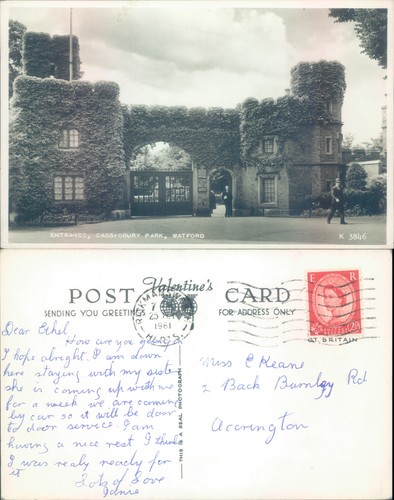 ENTRANCE, CASSIOBURY PARK, WATFORD
K 3846
POST Valentine's CARD
SENDING YOU GREETINGS
FOR ADDRESS ONLY
RICKMANSWORTH
1961
HERTS
E R
POSTAGE REVENUE
GT. BRITAIN
THIS IS A REAL PHOTOGRAPH
Dear Ethel,
How are you getting on
I hope alright. I am down
here staying with my sister
she is coming up with me
for a week we are coming
by car so it will be door
to door service. I am
having a nice rest I think
I was realy ready for
it
Lots of Love
Miss E Keane
2 Back Burnley Rd
Accrington